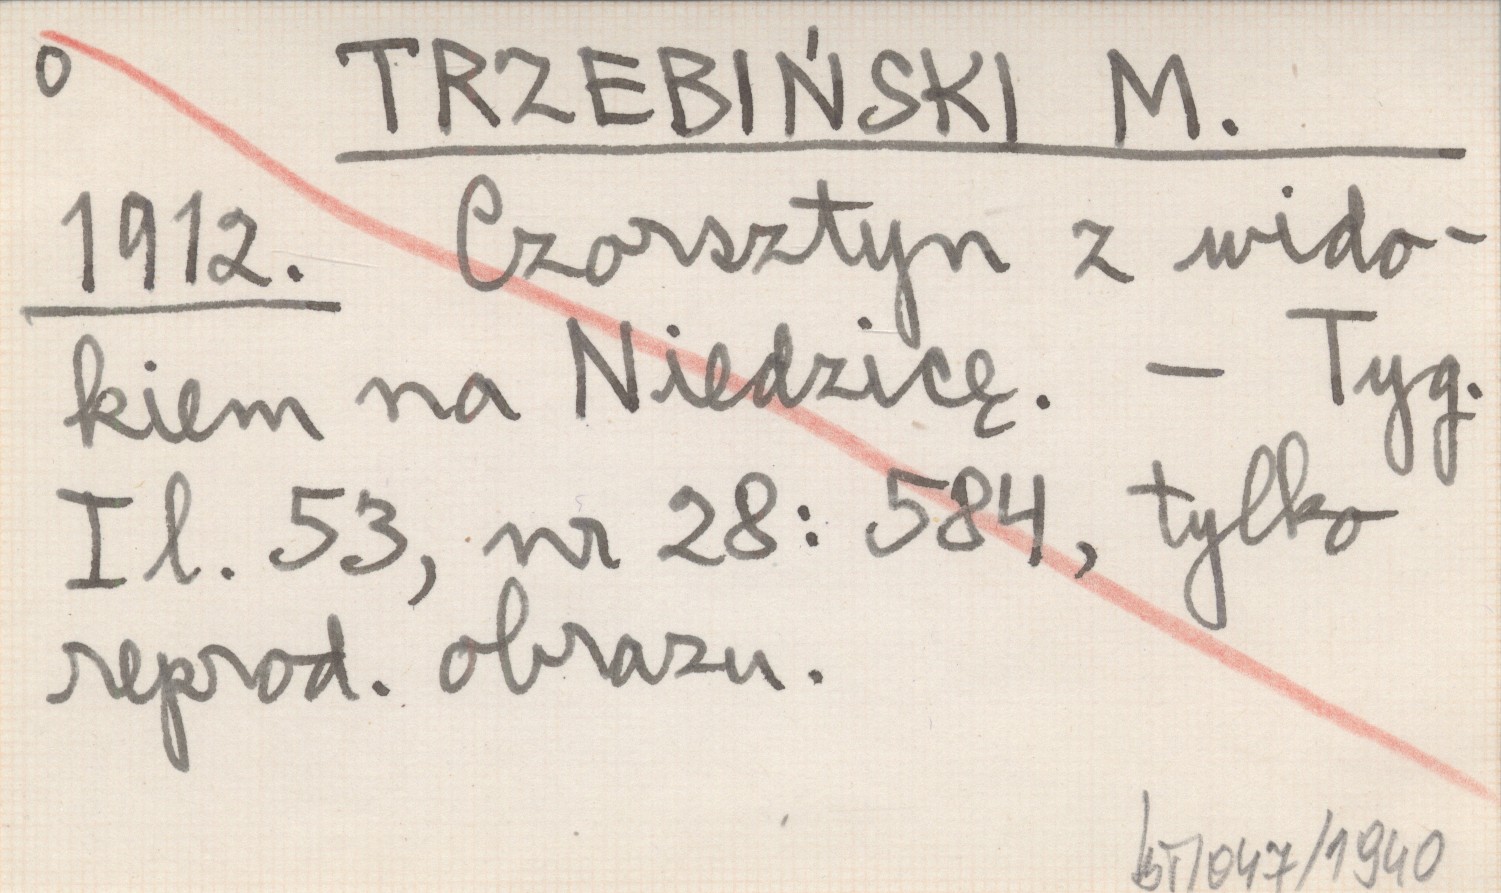 o TRZEBIŃSKI M.
1912. Czorsztyn z wido-
kiem na Niedzicę. – Tyg.
Il. 53, nr 28: 584, tylko
reprod. obrazu.
/1940